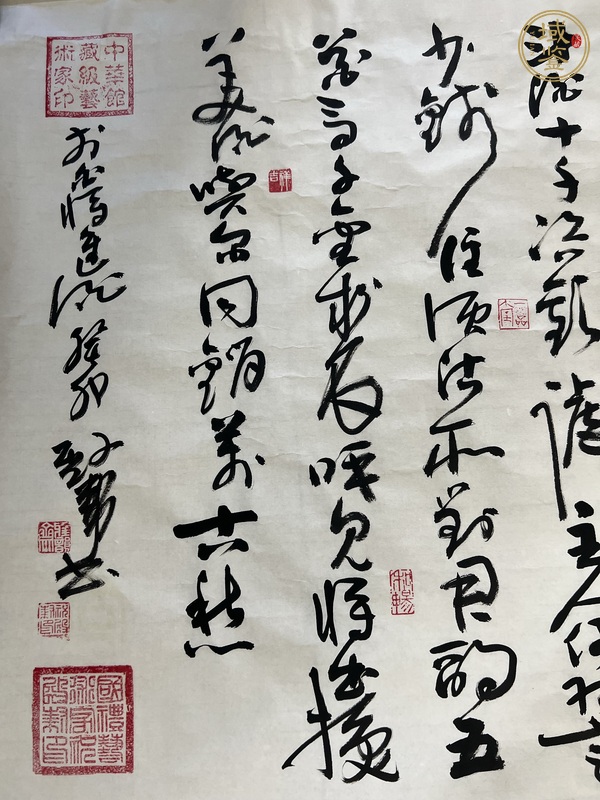 酒十千恣歡謔主人何為言
少錢徑須沽取對君酌五
花馬千金裘呼兒將出換
美酒與尔同銷萬古愁
將進酒癸卯
書
中華館藏級藝術家印
吉祥
域鉴